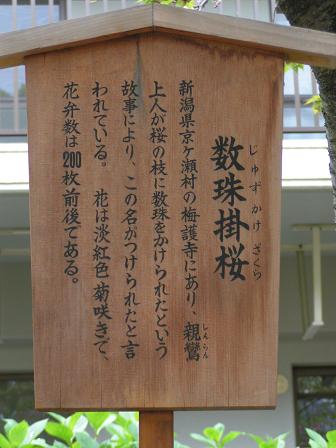 数珠掛桜
じゅずかけざくら
新潟県京ケ瀬村の梅護寺にあり、親鸞
しんらん
上人が桜の枝に数珠をかけられたという
故事により、この名がつけられたと言
われている。　花は淡紅色 菊咲きで、
花弁数は200枚前後である。